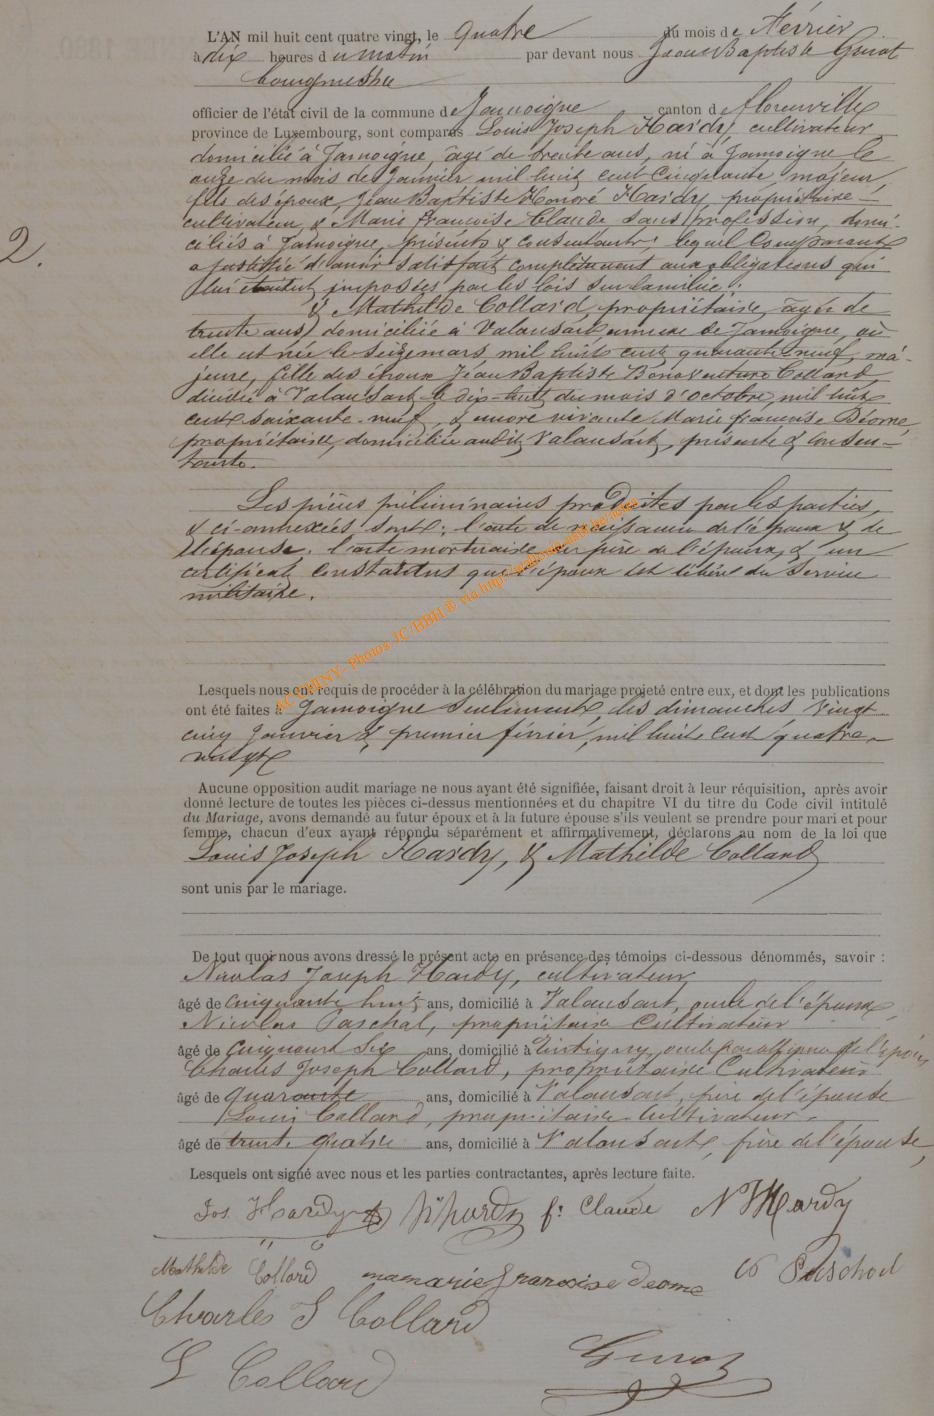 L'AN mil huit cent quatre vingt, le quatre du mois de Février
à dix heures du matin par devant nous Jean Baptiste Guiot
bourgmestre
officier de l'état civil de la commune de Jamoigne canton de florenville
province de Luxembourg, sont comparus Louis Joseph Hardy, cultivateur
domicilié à Jamoigne, âgé de trente ans, né à Jamoigne le
onze du mois de Janvier mil huit cent cinquante, majeur,
fils des époux Jean Baptiste Honoré Hardy, propriétaire
cultivateur, & Marie françoise Claude sans profession, domi-
ciliés à Jamoigne, présents & consentants; lequel Comparant
a justifié d'avoir satisfait complètement aux obligations qui
lui étaient imposées par les lois sur la milice;
2.
& Mathilde Collard, propriétaire, âgée de
trente ans, domiciliée à Valansart annexe de Jamoigne, où
elle est née le seize mars mil huit cent quarante neuf, ma-
jeure, fille des époux Jean Baptiste Bonaventure Collard
décédé à Valansart le dix-huit du mois d'octobre mil huit
cent soixante-neuf, & encore vivante Marie françoise Déome,
propriétaire, domiciliée audit Valansart, présente & consen-
tante.
Les pièces préliminaires produites par les parties,
& ci-annexées sont: l'acte de naissance de l'époux & de
l'épouse, l'acte mortuaire du père de l'épouse, & un
certificat constatant que l'époux est libéré du service
militaire.
ACTUNINY- Photos JC7HBH® via http://
Lesquels nous ont requis de procéder à la célébration du mariage projeté entre eux, et dont les publications
ont été faites à Jamoigne seulement, des dimanches vingt
cinq Janvier & premier février, mil huit cent quatre-
vingt
Aucune opposition audit mariage ne nous ayant été signifiée, faisant droit à leur réquisition, après avoir
donné lecture de toutes les pièces ci-dessus mentionnées et du chapitre VI du titre du Code civil intitulé
du Mariage, avons demandé au futur époux et à la future épouse s'ils veulent se prendre pour mari et pour
femme, chacun d'eux ayant répondu séparément et affirmativement, déclarons au nom de la loi que
Louis Joseph Hardy, & Mathilde Collard
sont unis par le mariage.
De tout quoi nous avons dressé le présent acte en présence des témoins ci-dessous dénommés, savoir :
Nicolas Joseph Hardy, cultivateur
âgé de cinquante huit ans, domicilié à Valansart, oncle de l'époux,
Nicolas Paschal, propriétaire Cultivateur
âgé de cinquante six ans, domicilié à Tintigny, oncle par alliance de l'époux
Charles Joseph Collard, propriétaire Cultivateur
âgé de quarante ans, domicilié à Valansart, frère de l'épouse
Louis Collard, propriétaire cultivateur
âgé de trente quatre ans, domicilié à Valansart, frère de l'épouse,
Lesquels ont signé avec nous et les parties contractantes, après lecture faite.
Jos Hardy hardy f: Claude N J Hardy
Mathilde Collard marie françoise deome Paschal
Charles J Collard
L Collard Guiot